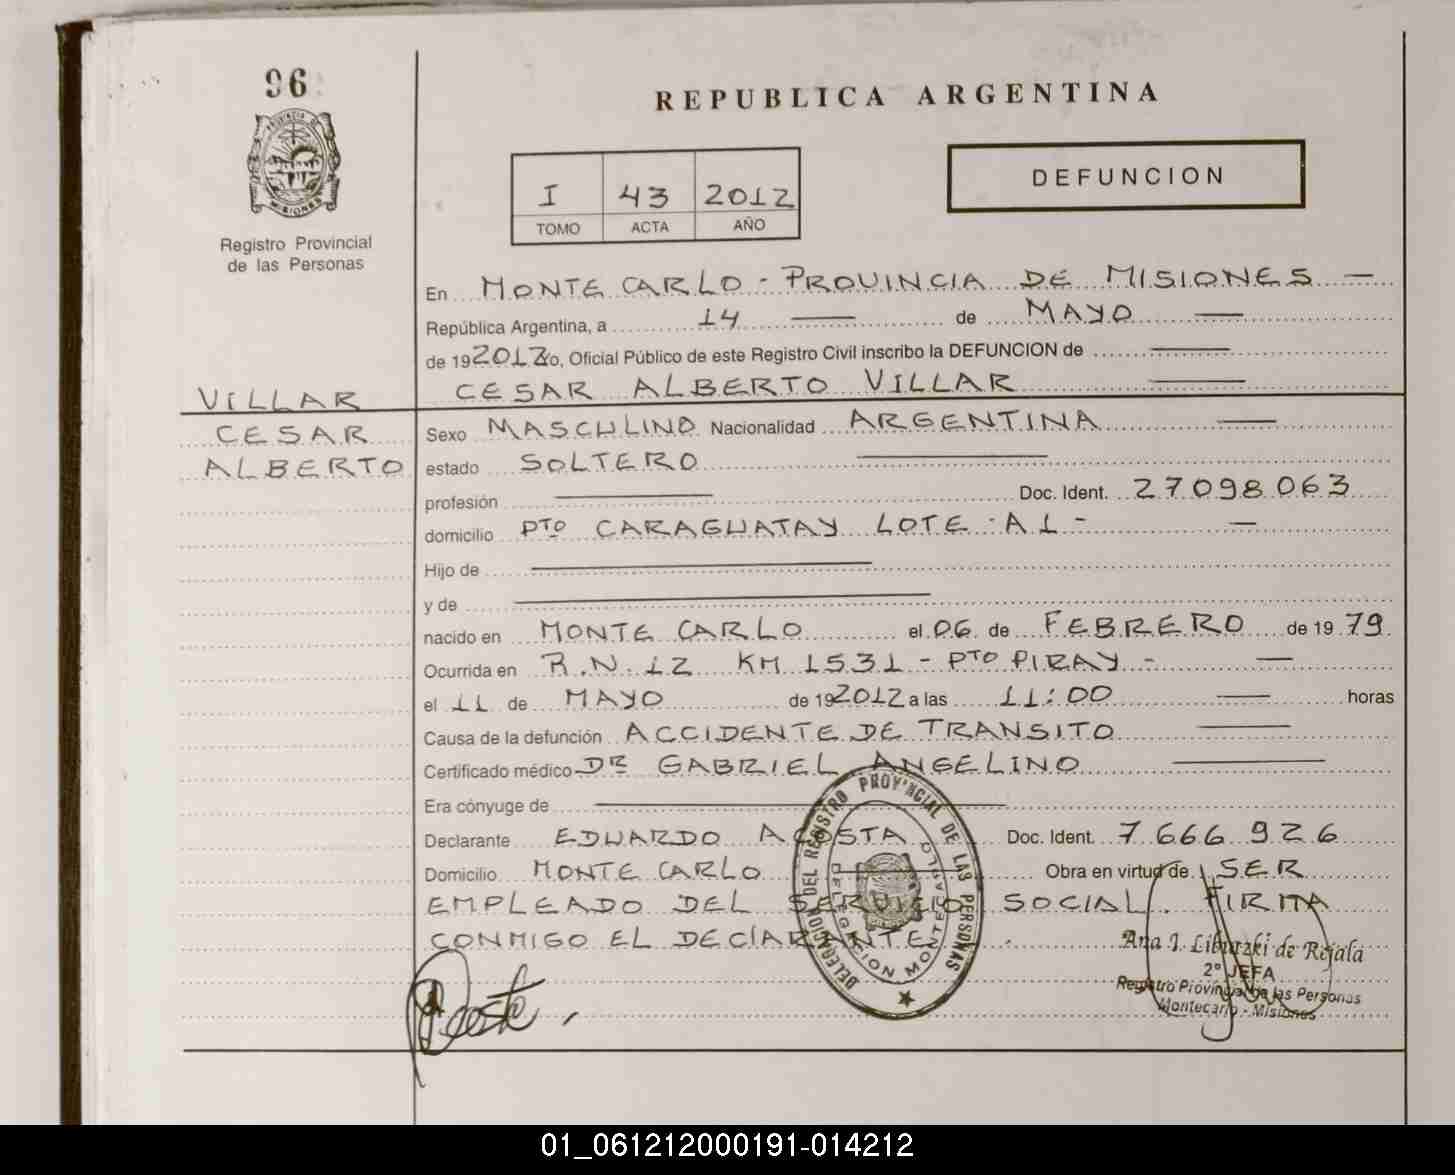 96
PROVINCIA DE
MISIONES
Registro Provincial
de las Personas
VILLAR
CESAR
ALBERTO
REPUBLICA ARGENTINA
I 43 2012
TOMO ACTA AÑO
DEFUNCION
En MONTE CARLO - PROVINCIA DE MISIONES —
República Argentina, a 14 — de MAYO —
de 192012 Yo, Oficial Público de este Registro Civil inscribo la DEFUNCION de —
CESAR ALBERTO VILLAR —
Sexo MASCULINO Nacionalidad ARGENTINA —
estado SOLTERO —
profesión — Doc. Ident. 27098063
domicilio PTO CARAGUATAY LOTE A1 - —
Hijo de —
y de —
nacido en MONTE CARLO el 06 de FEBRERO de 1979
Ocurrida en R.N. 12 KM 1531 - PTO PIRAY - —
el 11 de MAYO de 192012 a las 11:00 — horas
Causa de la defunción ACCIDENTE DE TRANSITO —
Certificado médico DR GABRIEL ANGELINO —
Era cónyuge de —
Declarante EDUARDO ACOSTA Doc. Ident. 7666926
Domicilio MONTE CARLO — Obra en virtud de SER
EMPLEADO DEL SERVICIO SOCIAL. FIRMA
CONMIGO EL DECLARANTE.
DELEGACION DEL REGISTRO PROVINCIAL DE LAS PERSONAS
DELEGACION MONTECARLO
Acosta
Ana I. de Rejala
2° JEFA
Registro Provincial de las Personas
Montecarlo - Misiones
01_061212000191-014212